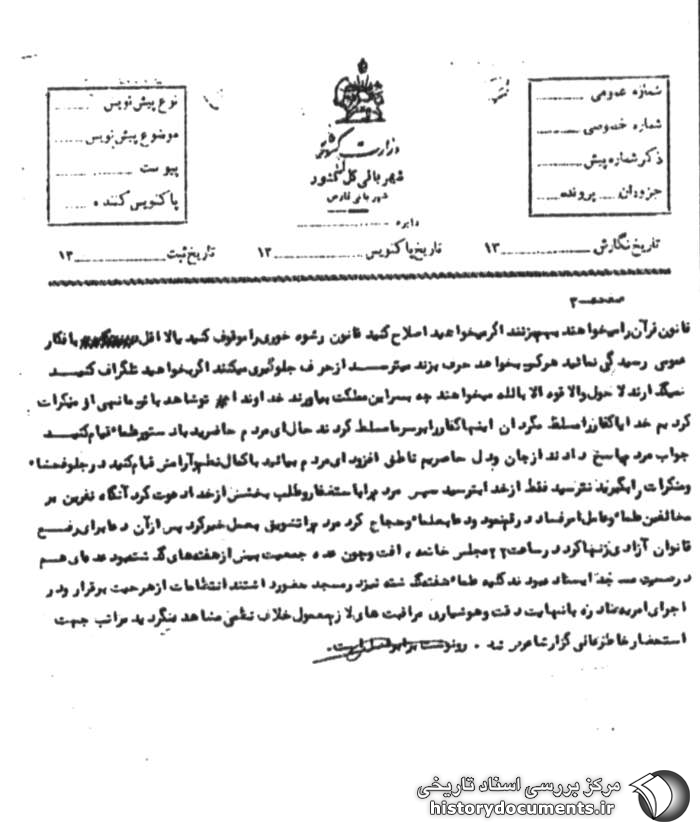 شماره عمومی
شماره خصوصی
ذکر شماره پیش
جزوه دان پرونده
وزارت کشور
شهربانی کل کشور
شهربانی فارس
دایره
نوع پیش نویس
موضوع پیش نویس
پیوست
پاکنویس کننده
تاریخ نگارش ۱۳ تاریخ پاکنویس ۱۳ تاریخ ثبت ۱۳
صفحه ۳
قانون قرآن را میخواهند بهم بزنند اگر میخواهید اصلاح کنید قانون رشوه خوری را موقوف کنید یا لااقل با فکار
عمومی رسیدگی نمائید هر کس بخواهد حرف بزند میترسد از حرف جلوگیری میکنند اگر بخواهید تلگراف کنید
نمیگذارند لاحول والا قوه الا بالله میخواهند چه بسر این مملکت بیاورند خداوندا تو شاهد با تو ما نهی از منکرات
کردیم خدایا کفار را مسلط مگردان اینها کفار را بر سر ما مسلط کردند حال ای مردم حاضرید بادستور علماء قیام کنید
جواب مردم پاسخ دادند از جان و دل حاضریم ناطق افزود ای مردم بیائید با کمال نظم و آرامش قیام کنید و جلو فحشاء
و منکرات را بگیرید نترسید فقط از خدا بترسید سپس مردم را باستغفار و طلب بخشش از خدا دعوت کرد آنگاه نفرین بر
مخالفین علماء و عاملا امر فساد در قم نمود و دعا بعلماء و حجاج کرد مردم را تشویق بعمل خیر کرد پس از آن دعا برای رفع
قانون آزادی زنها کرد در ساعت ۲۲ مجلس خاتمه یافت و چون عده جمعیت بیش از هفته های گذشته بود عده ای هم
در صحن مسجد ایستاده بودند کلیه علماء هفته گذشته نیز در مسجد حضور داشتند انتظامات از هر حیث برقرار و در
اجرای امریه صادره با نهایت دقت و هوشیاری مراقبت های لازم بعمول خلاف نظمی مشاهده نگردید مراتب جهت
استحضار خاطر عالی گزارشا عرض شد . رونوشت برابر اصل است .
مرکز بررسی اسناد تاریخی
historydocuments.ir